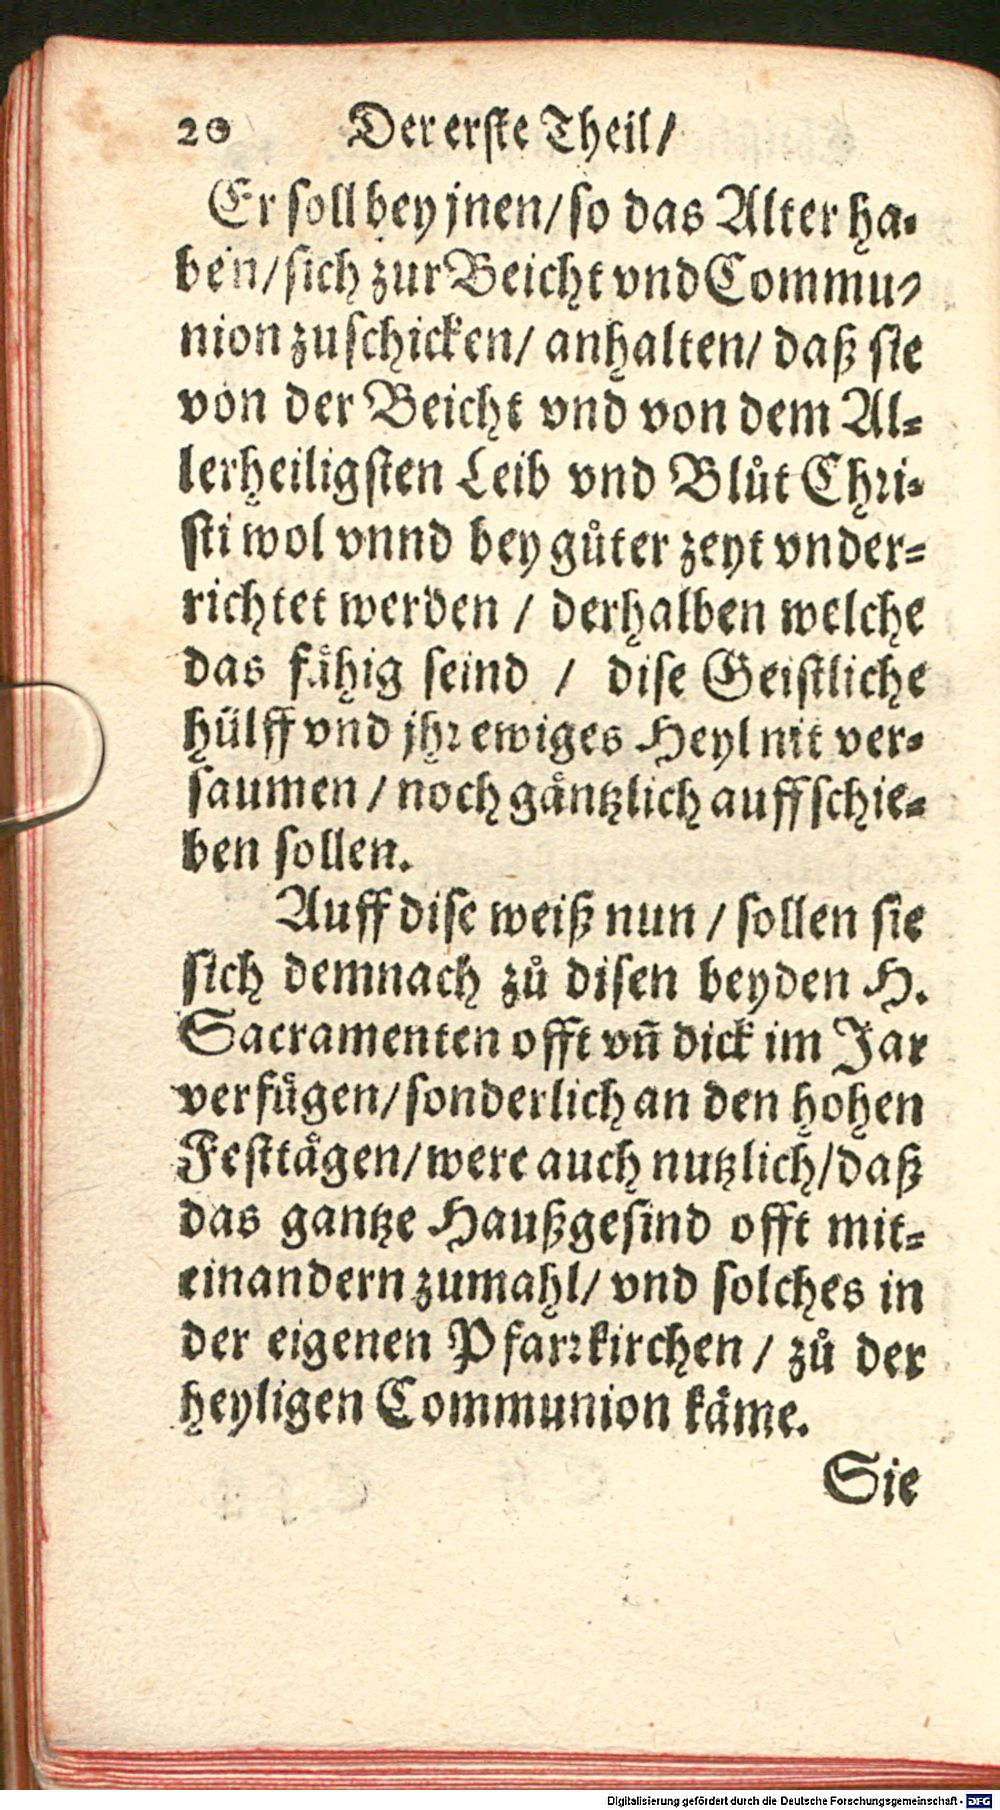 20 Der erste Theil/
Er soll bey jnen/ so das Alter ha-
ben/ sich zur Beicht vnd Commu-
nion zuschicken/ anhalten/ daß sie
von der Beicht vnd von dem Al-
lerheiligsten Leib vnd Blůt Chri-
sti wol vnnd bey gůter zeyt vnder-
richtet werden / derhalben welche
das fähig seind / dise Geistliche
hülff vnd jhr ewiges Heyl nit ver-
saumen / noch gäntzlich auffschie-
ben sollen.
Auff dise weiß nun / sollen sie
sich demnach zů disen beyden H.
Sacramenten offt vñ dick im Jar
verfügen/ sonderlich an den hohen
Festtägen/ were auch nutzlich/ daß
das gantze Haußgesind offt mit-
einandern zumahl/ vnd solches in
der eigenen Pfarrkirchen / zů der
heyligen Communion käme.
Sie
Digitalisierung gefördert durch die Deutsche Forschungsgemeinschaft - DFG